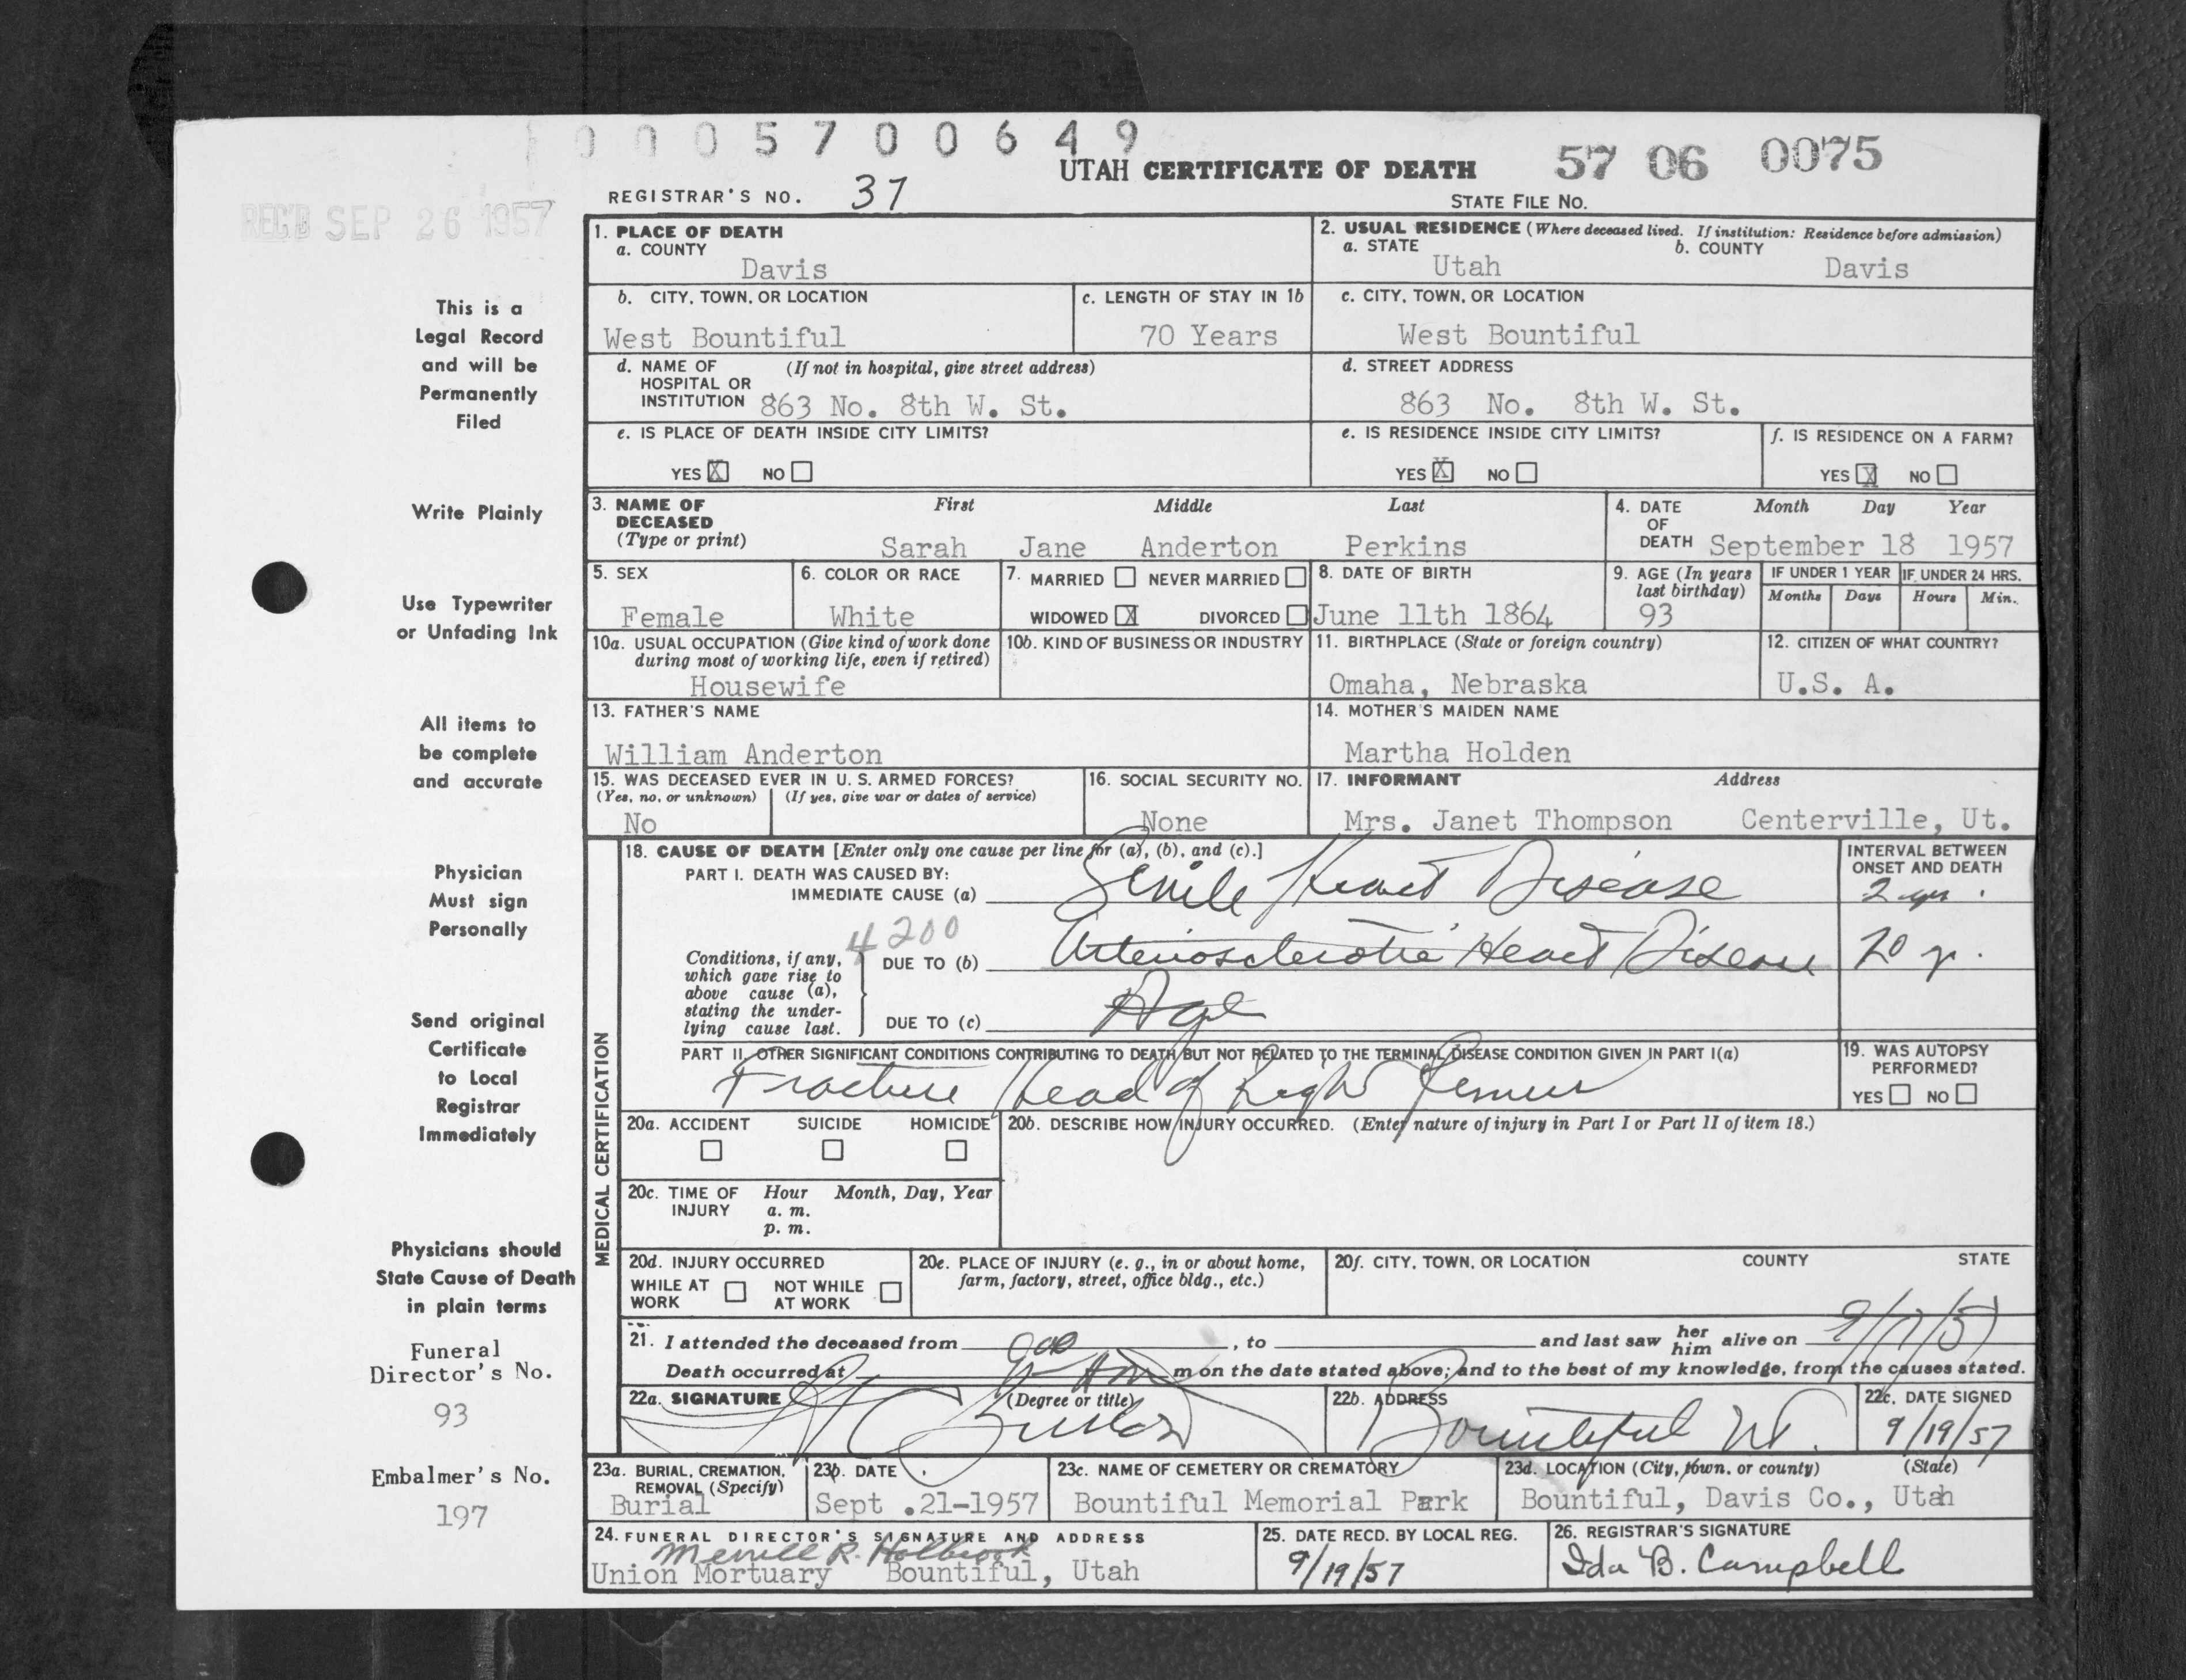 0005700649
UTAH CERTIFICATE OF DEATH
57 06 0075
REGISTRAR'S NO. 37
STATE FILE NO.
REC'D SEP 26 1957
This is a
Legal Record
and will be
Permanently
Filed
Write Plainly
Use Typewriter
or Unfading Ink
All items to
be complete
and accurate
Physician
Must sign
Personally
Send original
Certificate
to Local
Registrar
Immediately
Physicians should
State Cause of Death
in plain terms
Funeral
Director's No.
93
Embalmer's No.
197
1. PLACE OF DEATH
a. COUNTY
Davis
2. USUAL RESIDENCE (Where deceased lived. If institution: Residence before admission)
a. STATE
Utah
b. COUNTY
Davis
b. CITY, TOWN, OR LOCATION
West Bountiful
c. LENGTH OF STAY IN 1b
70 Years
c. CITY, TOWN, OR LOCATION
West Bountiful
d. NAME OF (If not in hospital, give street address)
HOSPITAL OR
INSTITUTION 863 No. 8th W. St.
d. STREET ADDRESS
863 No. 8th W. St.
e. IS PLACE OF DEATH INSIDE CITY LIMITS?
YES X NO
e. IS RESIDENCE INSIDE CITY LIMITS?
YES X NO
f. IS RESIDENCE ON A FARM?
YES X NO
3. NAME OF
DECEASED
(Type or print)
First Middle Last
Sarah Jane Anderton Perkins
4. DATE
OF
DEATH
Month Day Year
September 18 1957
5. SEX
Female
6. COLOR OR RACE
White
7. MARRIED NEVER MARRIED
WIDOWED X DIVORCED
8. DATE OF BIRTH
June 11th 1864
9. AGE (In years
last birthday)
93
IF UNDER 1 YEAR
Months Days
IF UNDER 24 HRS.
Hours Min.
10a. USUAL OCCUPATION (Give kind of work done
during most of working life, even if retired)
Housewife
10b. KIND OF BUSINESS OR INDUSTRY
11. BIRTHPLACE (State or foreign country)
Omaha, Nebraska
12. CITIZEN OF WHAT COUNTRY?
U.S. A.
13. FATHER'S NAME
William Anderton
14. MOTHER'S MAIDEN NAME
Martha Holden
15. WAS DECEASED EVER IN U. S. ARMED FORCES?
(Yes, no, or unknown) (If yes, give war or dates of service)
No
16. SOCIAL SECURITY NO.
None
17. INFORMANT Address
Mrs. Janet Thompson Centerville, Ut.
MEDICAL CERTIFICATION
18. CAUSE OF DEATH [Enter only one cause per line for (a), (b), and (c).]
PART I. DEATH WAS CAUSED BY:
IMMEDIATE CAUSE (a) Senile Heart Disease
INTERVAL BETWEEN
ONSET AND DEATH
2 yrs.
4200
Conditions, if any,
which gave rise to
above cause (a),
stating the under-
lying cause last.
DUE TO (b) Arteriosclerotic Heart Disease
20 y.
DUE TO (c) Age
PART II. OTHER SIGNIFICANT CONDITIONS CONTRIBUTING TO DEATH BUT NOT RELATED TO THE TERMINAL DISEASE CONDITION GIVEN IN PART I(a)
Fracture Head of Right Femur
19. WAS AUTOPSY
PERFORMED?
YES NO
20a. ACCIDENT SUICIDE HOMICIDE
20b. DESCRIBE HOW INJURY OCCURRED. (Enter nature of injury in Part I or Part II of item 18.)
20c. TIME OF
INJURY
Hour Month, Day, Year
a. m.
p. m.
20d. INJURY OCCURRED
WHILE AT
WORK
NOT WHILE
AT WORK
20e. PLACE OF INJURY (e. g., in or about home,
farm, factory, street, office bldg., etc.)
20f. CITY, TOWN, OR LOCATION COUNTY STATE
21. I attended the deceased from , to and last saw her him alive on 9/17/57
Death occurred at Am m on the date stated above; and to the best of my knowledge, from the causes stated.
22a. SIGNATURE (Degree or title)
22b. ADDRESS
Bountiful Ut.
22c. DATE SIGNED
9/19/57
23a. BURIAL, CREMATION,
REMOVAL (Specify)
Burial
23b. DATE
Sept .21-1957
23c. NAME OF CEMETERY OR CREMATORY
Bountiful Memorial Park
23d. LOCATION (City, town, or county) (State)
Bountiful, Davis Co., Utah
24. FUNERAL DIRECTOR'S SIGNATURE AND ADDRESS
Merrill R. Holbrook
Union Mortuary Bountiful, Utah
25. DATE RECD. BY LOCAL REG.
9/19/57
26. REGISTRAR'S SIGNATURE
Ida B. Campbell